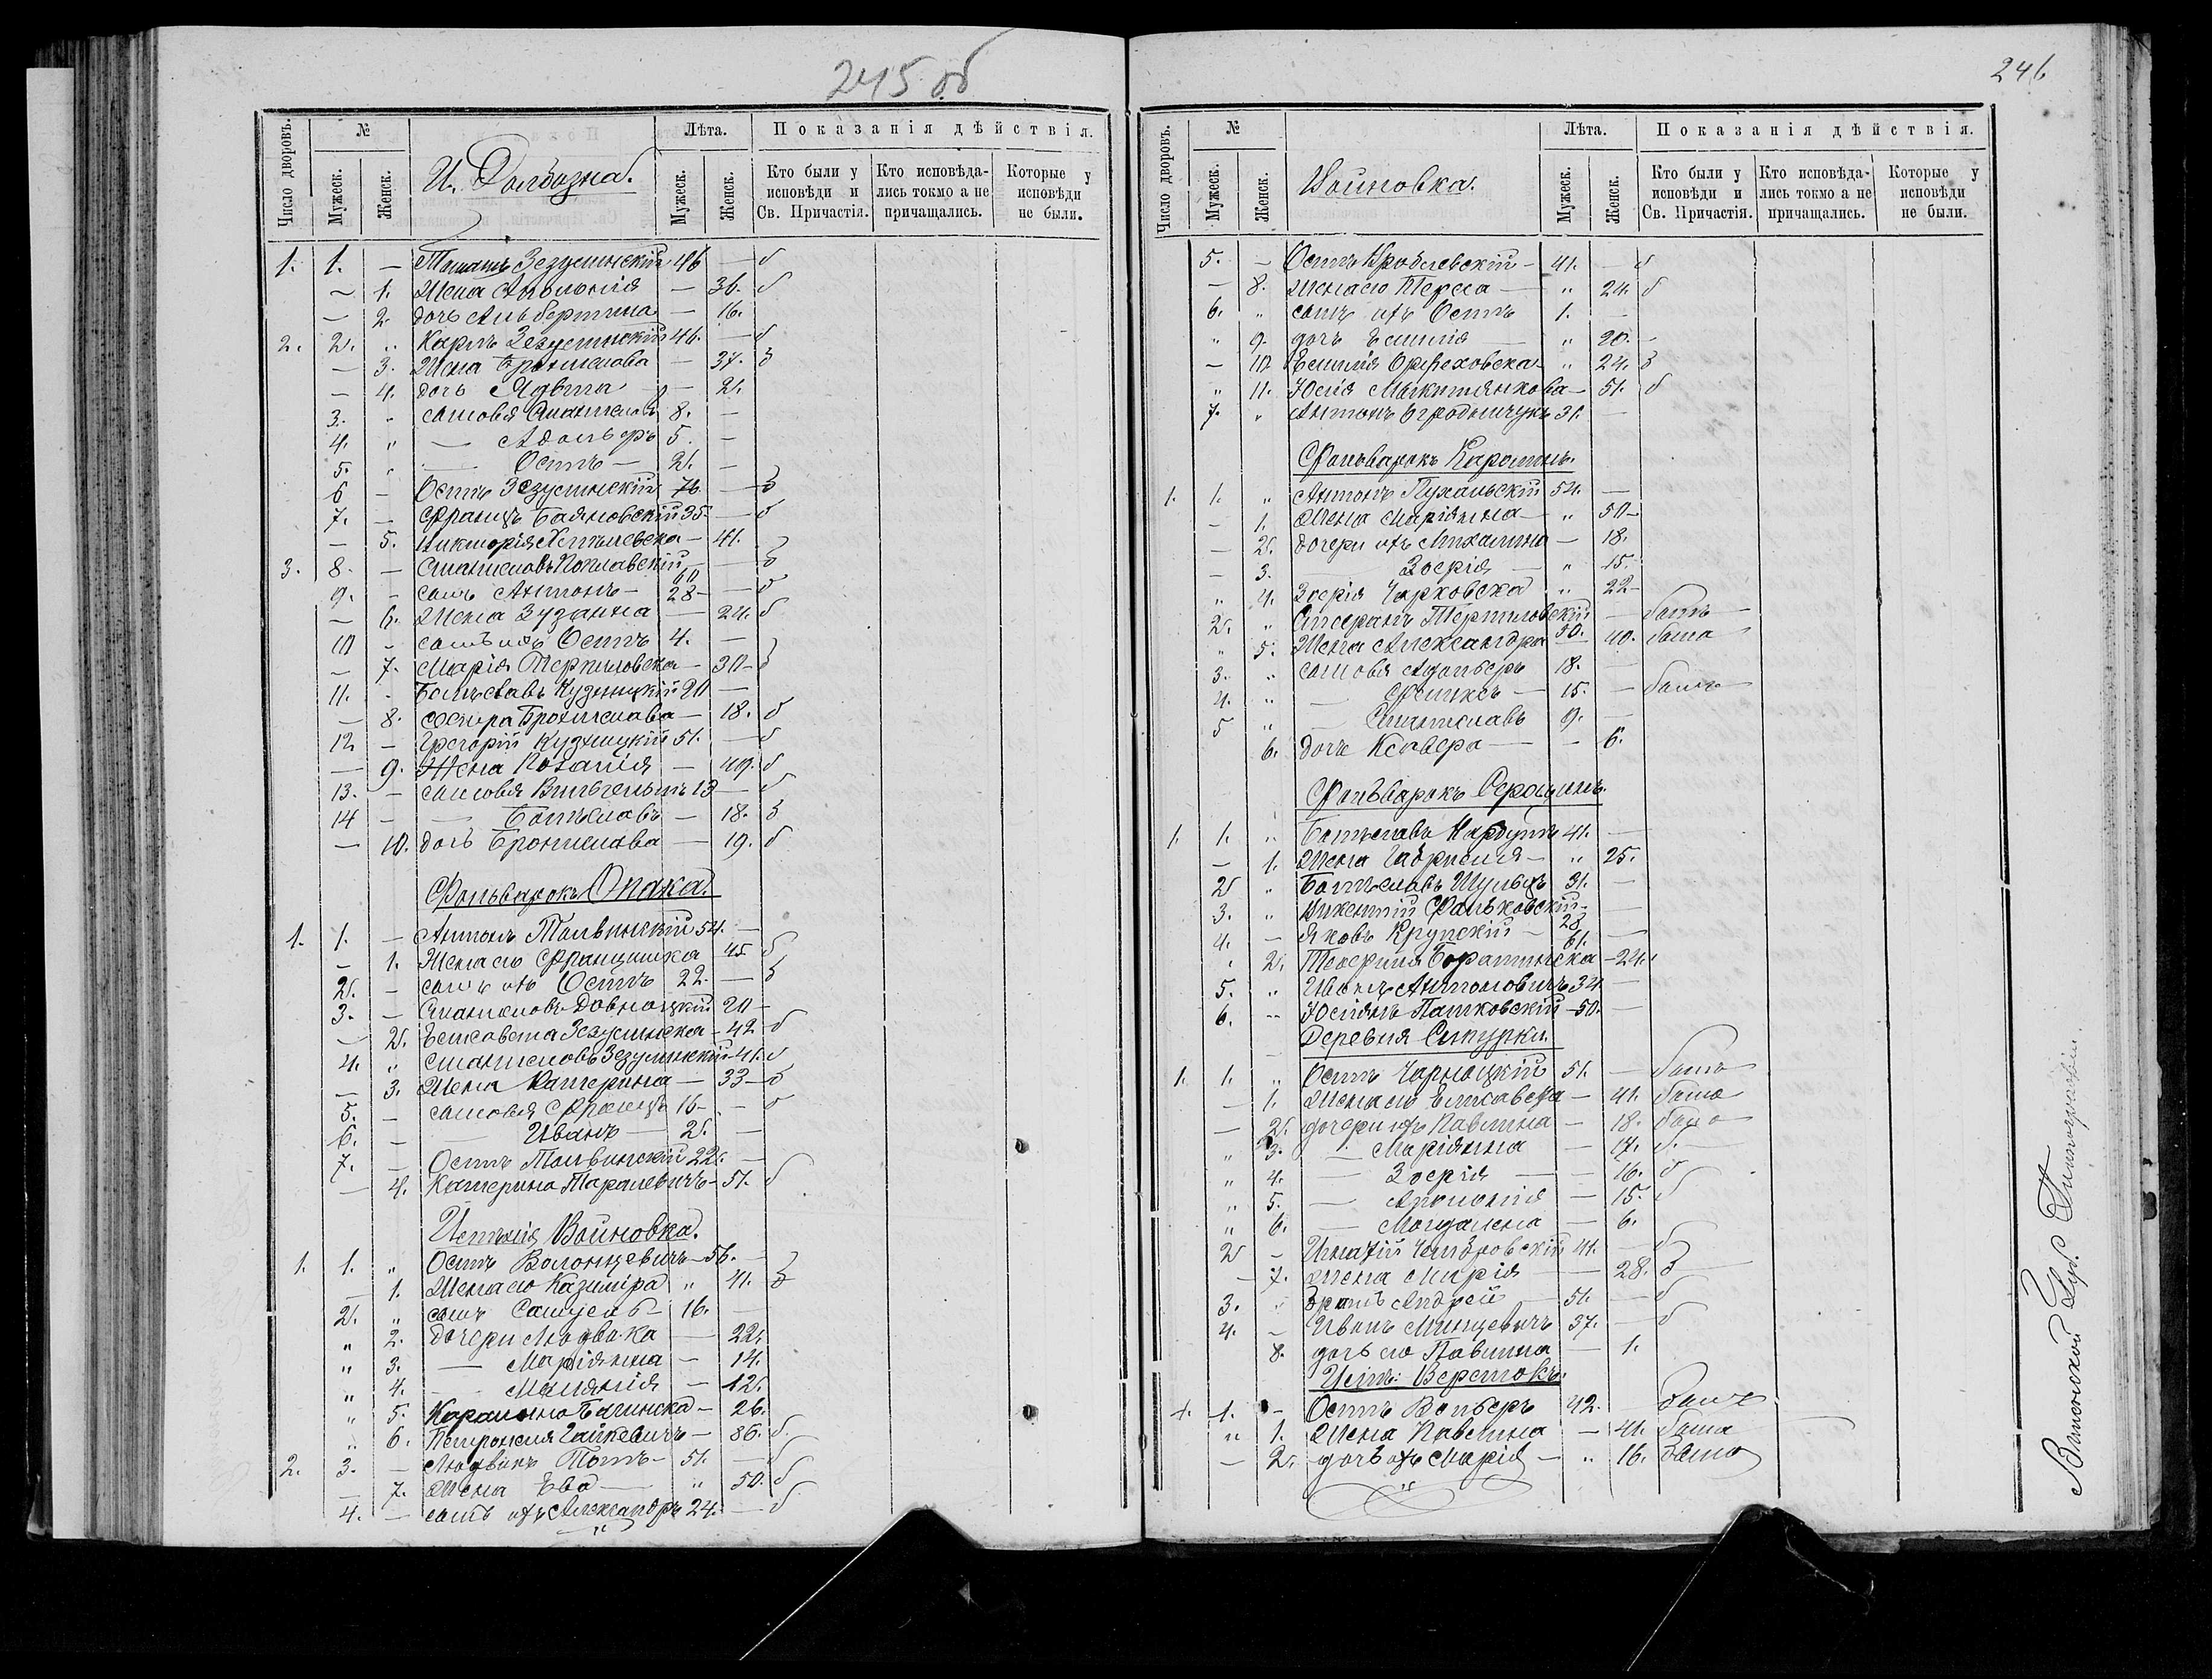 245 об
Число дворовъ. № Лѣта. Показанія дѣйствія.
Мужеск. Женск. И. Долбизна. Мужеск. Женск. Кто были у исповѣди и Св. Причастія. Кто исповѣда-лись токмо а не причащались. Которые у исповѣди не были.
1. 1. — Томашъ Зезулинскій 46 — б
— 1. Жена Аполонія — 36. б
— 2. дочь Альбертина — 16.
2. 2. „ Карлъ Зезулинскій 46. — б
— 3. Жена Бронислава — 37. б
— 4. дочь Ядвига — 2.
3. „ сыновья Станиславъ 8. —
4. „ — Адольфъ 5. —
5. „ — Осипъ — 2. —
6 — Осипъ Зезулинскій 76. — б
7. — Францъ Баяновскій 35 — б
— 5. Викторія — 41.
3. 8. — Станиславъ Поплавскій 60 — б
9. — сынъ Антонъ — 28 — б
— 6. Жена Зузанна — 24. б
10 — сынъ ихъ Осипъ 4. —
— 7. Марія Терпиловска — 30 — б
11. — Болѣславъ Кузницкій 20 —
— 8. сестра Бронислава — 18. б
12 — Григорій Кузницкій 51. — б
— 9. Жена Розалія — 49. б
13. — сыновья Вильгельмъ 13 — б
14 — — Болѣславъ — 18. б
— 10. дочь Бронислава — 19. б
Фольварокъ Опака.
1. 1. — Антонъ Толвинскій 54. —
— 1. Жена его Францишка 45 б
2. — сынъ ихъ Осипъ 22. — б
3. — Станиславъ 20 —
— 2. Елисавета Зезулинска — 42 б
4. „ Станиславъ Зезулинскій 41. б
— 3. Жена Катерина — 33 — б
5. — сыновья Францъ 16 — — б
6. — — Иванъ — 2. —
7. — Осипъ Толвинскій 22. —
— 4. Катерина Таралевичъ — 51. б
Имѣнія Войновка.
1. 1. „ Осипъ Волонцевичъ — 56. —
— 1. Жена его Казиміра „ 41. б
2. „ сынъ Самуелъ — 16. —
„ 2. дочери Людвика — 22.
„ 3. — Маріянна — 14.
„ 4. — Меланія — 12.
„ 5. Каролина Бачинска — 26.
„ 6. Петронеля Гацкевичъ — 86. б.
2. 3. — Людвикъ — 51. — б
— 7. Жена Ева — „ 50. б
4. — сынъ ихъ Александръ 24. — б
246
Число дворовъ. № Лѣта. Показанія дѣйствія.
Мужеск. Женск. Войновка. Мужеск. Женск. Кто были у исповѣди и Св. Причастія. Кто исповѣда-лись токмо а не причащались. Которые у исповѣди не были.
5. — Осипъ Вроблевскій — 41. — б
— 8. Жена его Тереса — „ 24. б
6. „ сынъ ихъ Осипъ 1. —
„ 9. дочь Емилія — „ 20. —
— 10. Емилія Орѣховска — „ 24. б
„ 11. Юлія — 51. б
7. „ Антонъ Огродничукъ 31. —
Фольварокъ Каролинъ.
1. 1. „ Антонъ Пухальскій 54. —
— 1. Жена Маріянна — „ 50 —
— 2. дочери ихъ Михалина — 18.
— 3. Зофія — „ 15.
„ 4. Зофія Чарковска „ 22 —
2. „ Терпиловскій — былъ
„ 5. Жена Александра 50. — 40. была
3. „ сыновья Адольфъ 18. —
4. „ — Феликсъ — 15. — былъ
5 „ — Станиславъ 9. —
6. дочь Ксавера — — 6.
Фольварокъ Серочинъ.
1. 1. „ Болѣславъ 41. —
— 1. Жена Габриеля — „ 25.
2 „ Болѣславъ Шульцъ 31. —
3. „ Викентій Фальковскій — 28 —
4. — Яковъ Крупскій — 61. —
„ 2. Теофиля — 24.
5. „ Иванъ Антоновичъ 34 —
6. „ Юліянъ Патковскій — 50. —
Деревня Сипурки.
1. 1. „ Осипъ Чарноцкій 51. — былъ
— 1. Жена его Елисавета — 41. была
— 2. дочери ихъ Павлина — 18. была
„ 3. — Маріянна — 17. б.
„ 4. — Зофія — 16. б
„ 5. — Аполонія — 15. б
„ 6. — Магдалена — 6.
2 — Игнатій 41. — б
— 7. Жена Марія — 28. б
3. „ братъ Андрей — 51. — б
4. — Иванъ Минцевичъ 37. — б
8. дочь его Павлина — 1.
Имѣн: Вересtokъ.
1. 1. — Осипъ Вольферъ 42. былъ
„ 1. Жена Павлина — 41. была
— 2. дочь ихъ Марія — „ 16. была
Виленской Губ. Типографіи.